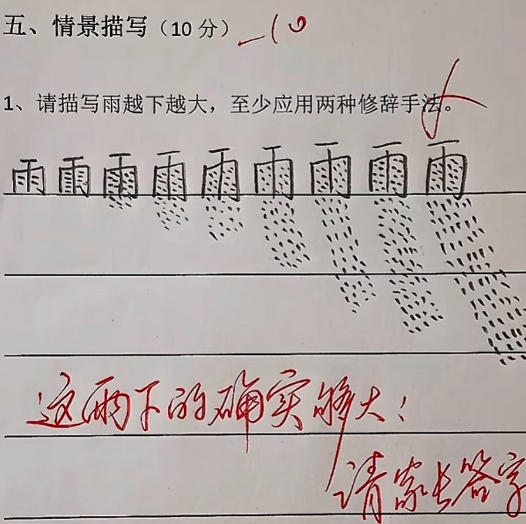 五、情景描写（10 分） -10
1、请描写雨越下越大，至少应用两种修辞手法。
雨雨雨雨雨雨雨雨雨
这雨下的确实够大！
请家长签字